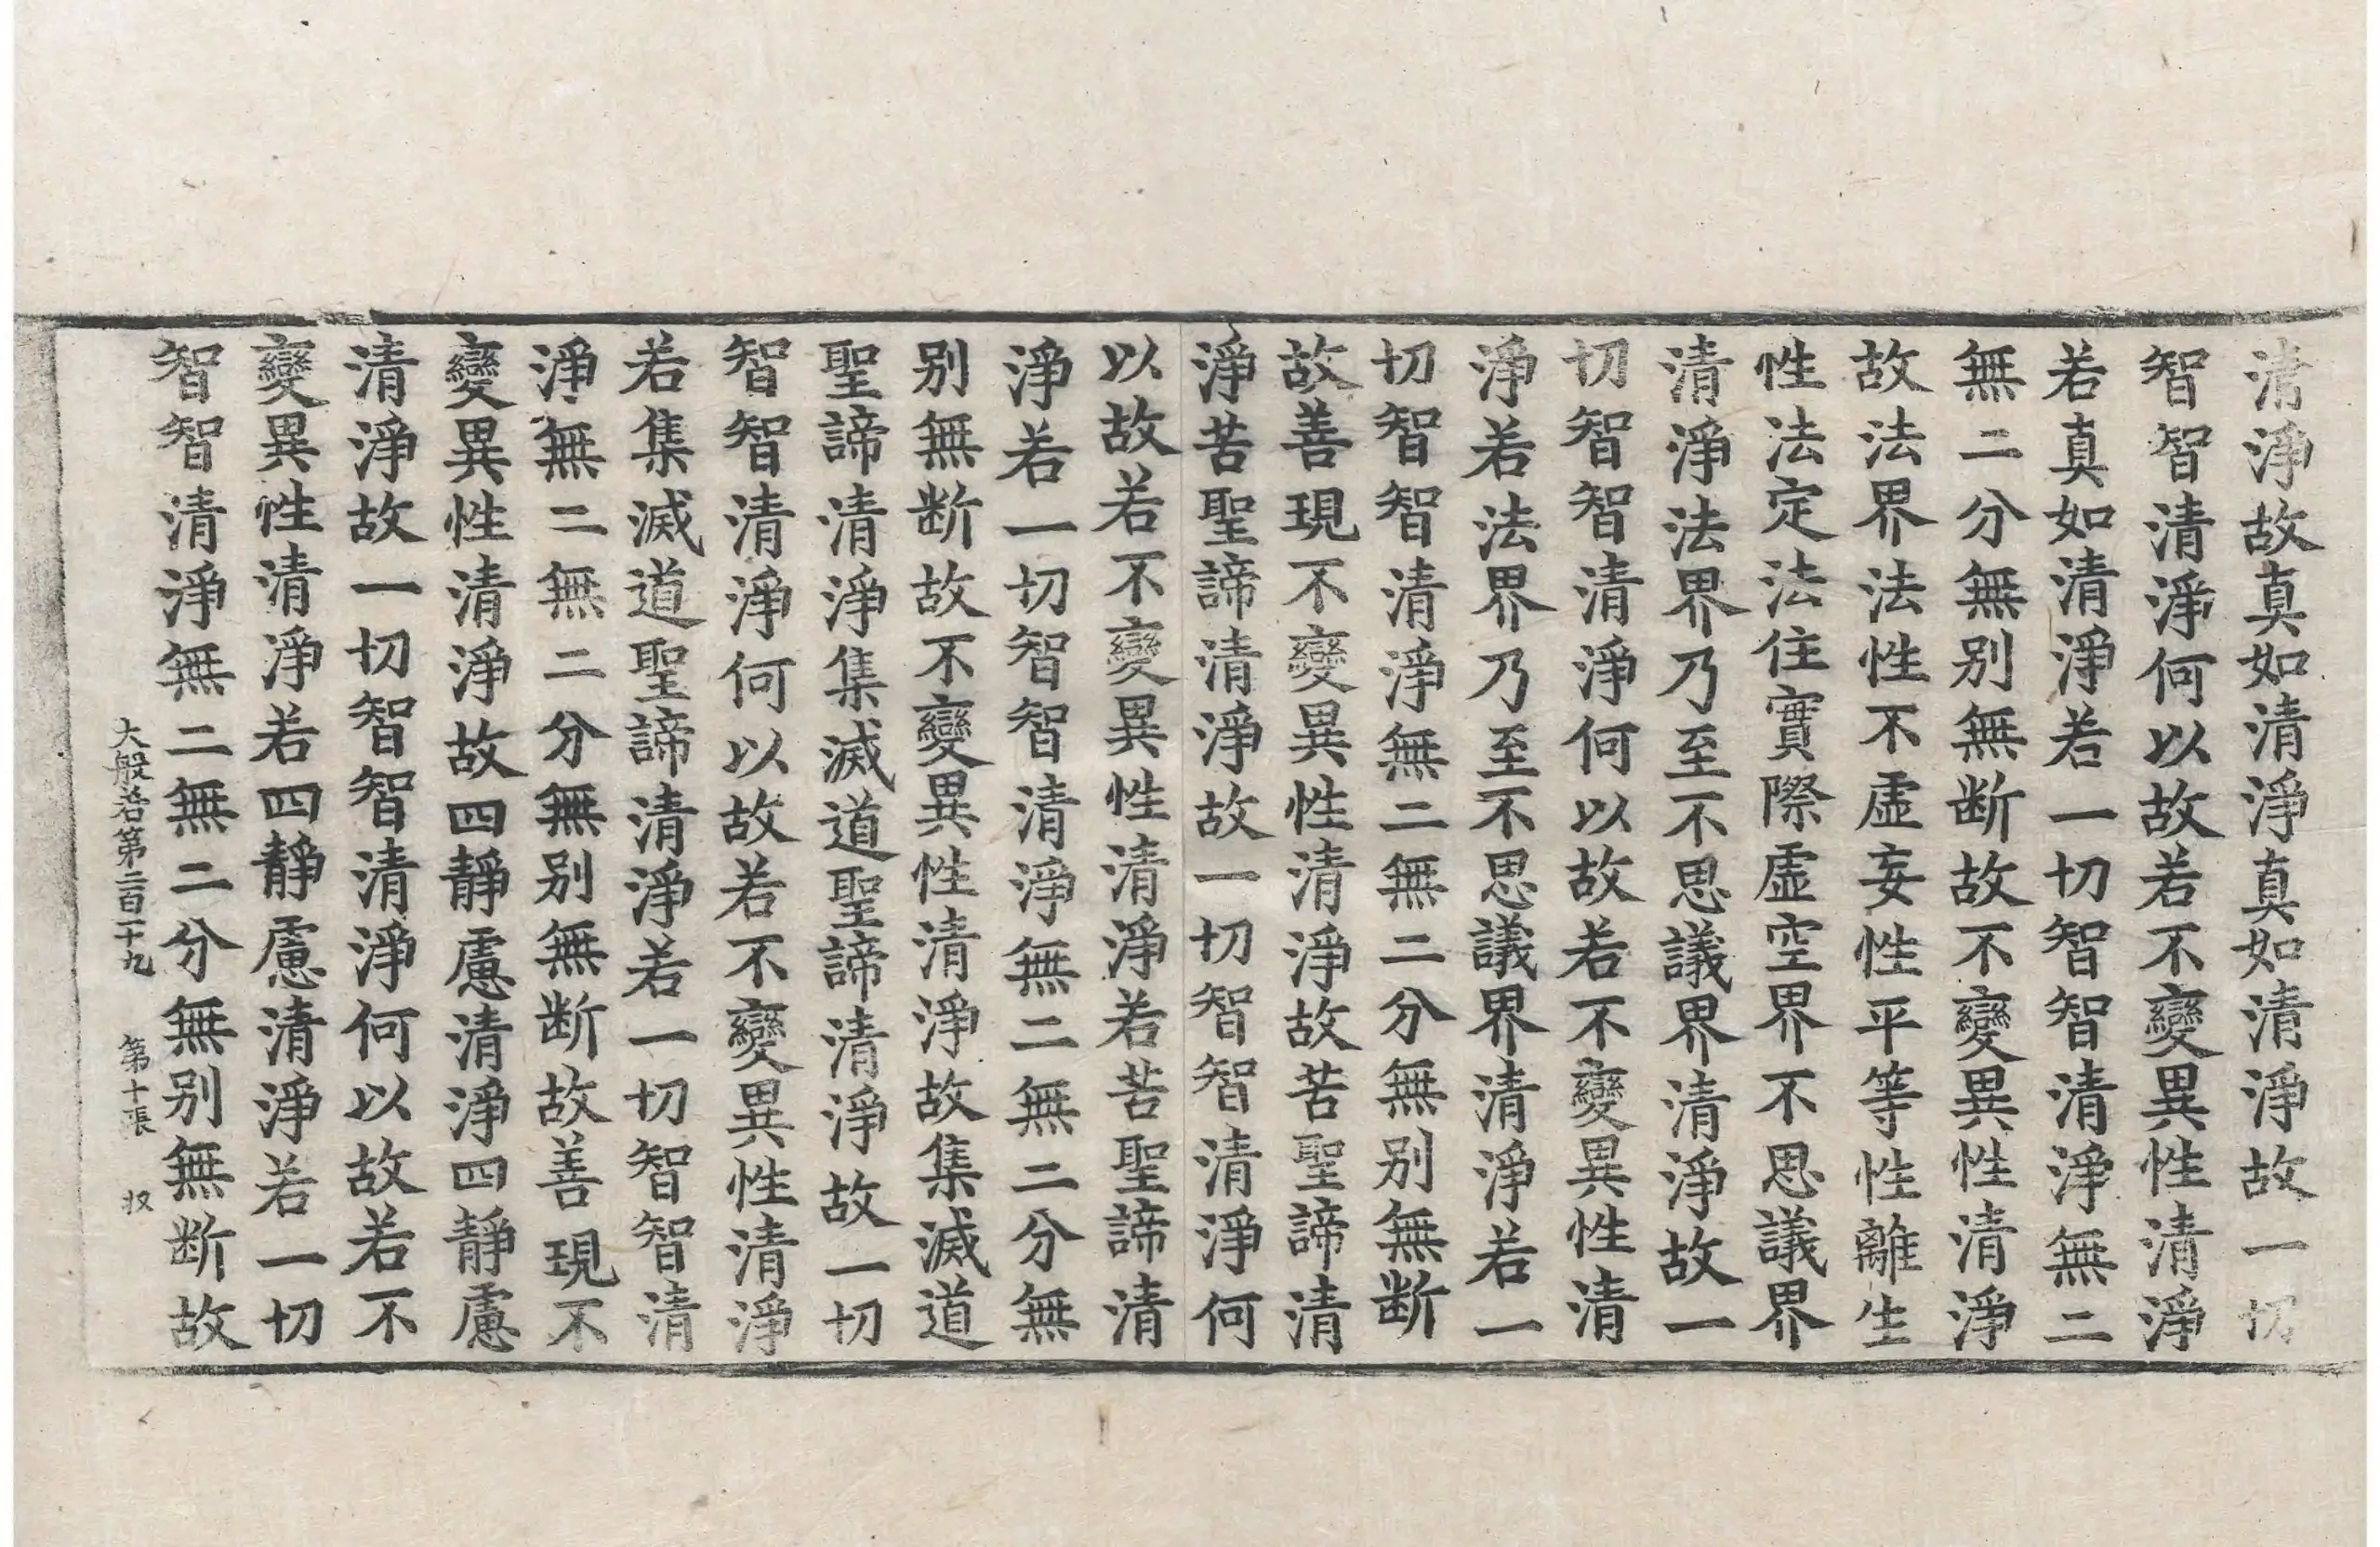 清淨故真如清淨真如清淨故一切
智智清淨何以故若不變異性清淨
若真如清淨若一切智智清淨無二
無二分無别無断故不變異性清淨
故法界法性不虛妄性平等性離生
性法定法住實際虛空界不思議界
清淨法界乃至不思議界清淨故一
切智智清淨何以故若不變異性清
淨若法界乃至不思議界清淨若一
切智智清淨無二無二分無别無断
故善現不變異性清淨故苦聖諦清
淨苦聖諦清淨故一切智智清淨何
以故若不變異性清淨若苦聖諦清
淨若一切智智清淨無二無二分無
别無断故不變異性清淨故集滅道
聖諦清淨集滅道聖諦清淨故一切
智智清淨何以故若不變異性清淨
若集滅道聖諦清淨若一切智智清
淨無二無二分無别無断故善現不
變異性清淨故四靜慮清淨四靜慮
清淨故一切智智清淨何以故若不
變異性清淨若四靜慮清淨若一切
智智清淨無二無二分無别無断故
大般若第二百二十九 第十張 奴